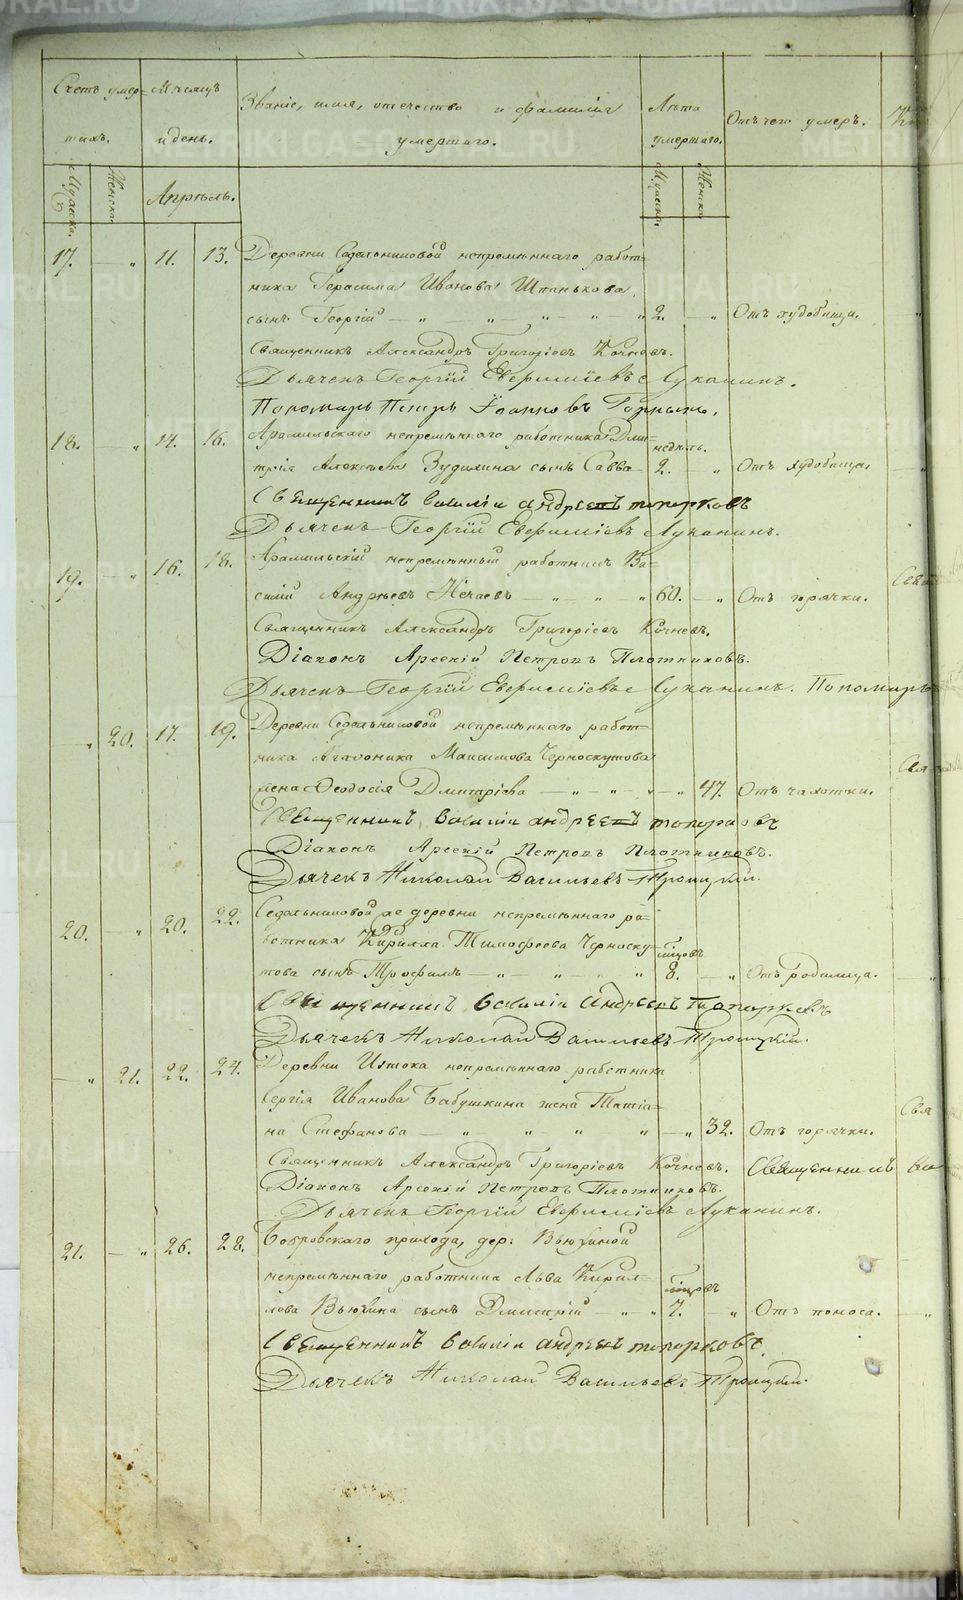 Счетъ умер- Мѣсяцъ Званіе, имя, отечество и фамилія Лѣта Отъ чего умеръ.
тихъ. и день. умершаго. умершаго.
Мужска. Женска. Апрѣль. Мужска. Женска.
17. — „ 11. 13. Деревни Седельниковой непремѣннаго работ-
ника Герасима Иванова Шпанькова
сынъ Георгій — „ — „ „ „ „ 2. — „ Отъ худобища.
Священникъ Александръ Григоріевъ Кочневъ.
Дьячекъ Георгій Евфиміевъ Луканинъ.
Пономарь Петръ Іоанновъ Горныхъ.
18. — „ 14. 16. Арамильскаго непремѣннаго работника Дми- недѣль.
трія Алексѣева Зудилина сынъ Савва — 2. — „ Отъ худобища.
Священникъ Василій Андреевъ Топорковъ
Дьячекъ Георгій Евфиміевъ Луканинъ.
19. — „ 16. 18. Арамильскій непремѣнный работникъ Ва-
силій Андреевъ Нечаевъ — „ „ „ 60. — „ Отъ горячки.
Священникъ Александръ Григоріевъ Кочневъ.
Діаконъ Арсеній Петровъ Плотниковъ.
Дьячекъ Георгій Евфиміевъ Луканинъ. Пономарь
„ 20. 17. 19. Деревни Седельниковой непремѣннаго работ-
ника Максимова Черноскутова
жена Ѳеодосія Дмитріева — „ — „ — „ — „ 47. Отъ чахотки.
Священникъ Василій Андреевъ Топорковъ
Діаконъ Арсеній Петровъ Плотниковъ.
Дьячекъ Николай Васильевъ Троицкій.
20. — „ 20. 22. Седельниковой же деревни непремѣннаго ра-
ботника Кирилла Тимофеева Черноску- мѣсяцовъ
това сынъ Трофимъ — „ — „ „ „ 8. — „ Отъ родимца.
Священникъ Василій Андреевъ Топорковъ
Дьячекъ Николай Васильевъ Троицкій.
— „ 21. 22. 24. Деревни Истока непремѣннаго работника
Сергія Иванова Бабушкина жена Татіа-
на Стефанова — „ „ „ „ — „ 32. Отъ горячки.
Священникъ Александръ Григоріевъ Кочневъ. Священникъ
Діаконъ Арсеній Петровъ Плотниковъ.
Дьячекъ Георгій Евфиміевъ Луканинъ.
21. — „ 26. 28. Бобровскаго прихода, дер. Вьюхиной
непремѣннаго работника Льва Кирил- мѣсяцовъ
лова Вьюхина сынъ Дмитрій — „ — „ 7. — „ Отъ поноса.
Священникъ Василій Андреевъ Топорковъ.
Дьячекъ Николай Васильевъ Троицкій.
METRIKI.GASO-URAL.RU